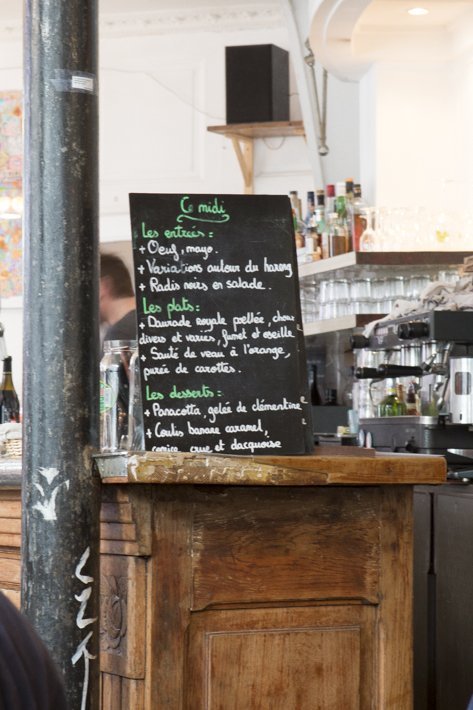 Ce midi
Les entrées :
+ Oeuf, mayo.
+ Variations autour du hareng
+ Radis noirs en salade.
Les plats :
+ Daurade royale poêlée, choux
divers et variés, fumet et oseille
+ Sauté de veau à l'orange,
purée de carottes.
Les desserts :
+ Panacotta, gelée de clémentine
+ Coulis banane caramel,
crue et dacquoise